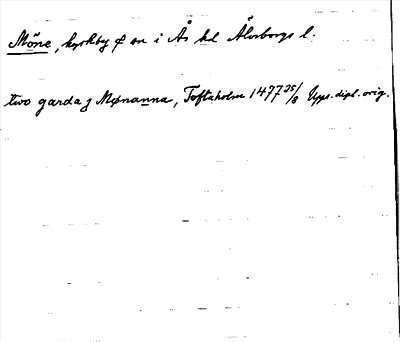 Möne, kyrkby o sn i Ås hd Älvsborgs l.
two garda j Mønanna, Toftaholm 1477 25/8 Upps. dipl. orig.